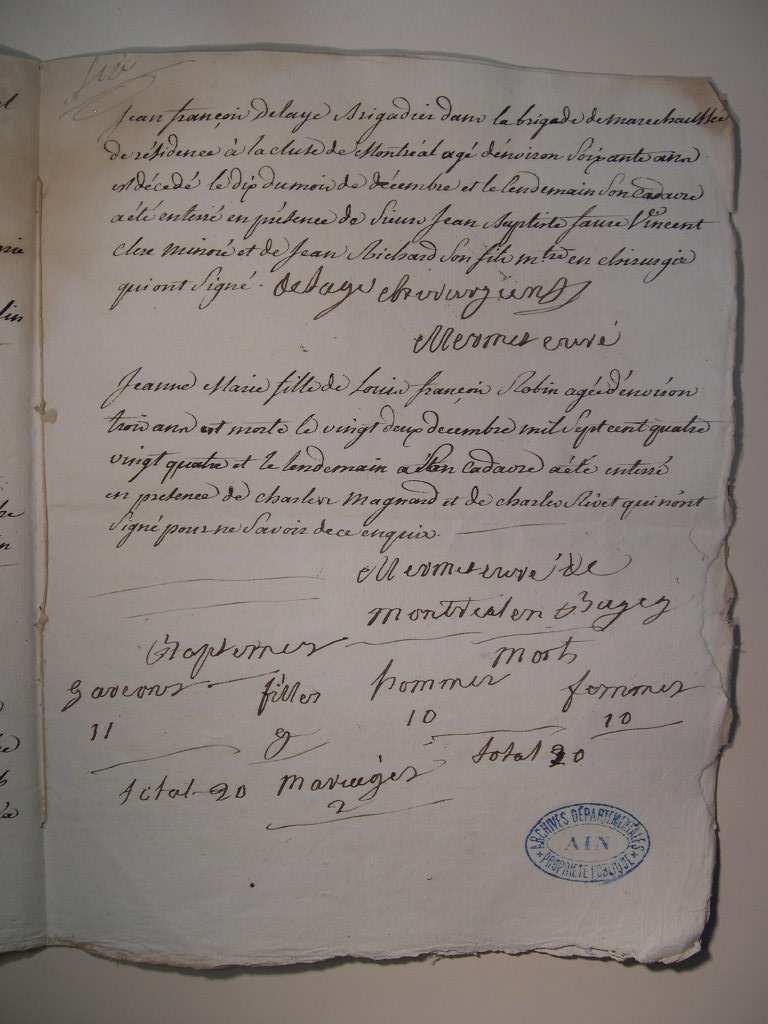 Jean françois Delaye Brigadier dans la brigade de marechaussée
de résidence à la cluse de Montréal agé d'énviron soixante ans
est décédé le dix du mois de décembre et le lendemain son Cadavre
a été enterré en présence de Sieur Jean Baptiste faure Vincent
clerc minoré et de Jean Richard son fils mtre en chirurgie
qui ont Signé. delaye chirurgien
Mermet curé
Jeanne Marie fille de Louis françois Robin agée d'énviron
trois ans est morte le vingt deux decembre mil Sept cent quatre
vingt quatre et le lendemain son Cadavre a été enterré
en présence de charles magnard et de charles Rivet qui n'ont
Signé pour ne Savoir de ce enquix.
Mermet curé de
montréal en Bugey
Baptemes
Morts
garcons filles hommes femmes
11 9 10 10
total 20
total 20
mariages
2
ARCHIVES DÉPARTEMENTALES
AIN
PROPRIÉTÉ PUBLIQUE